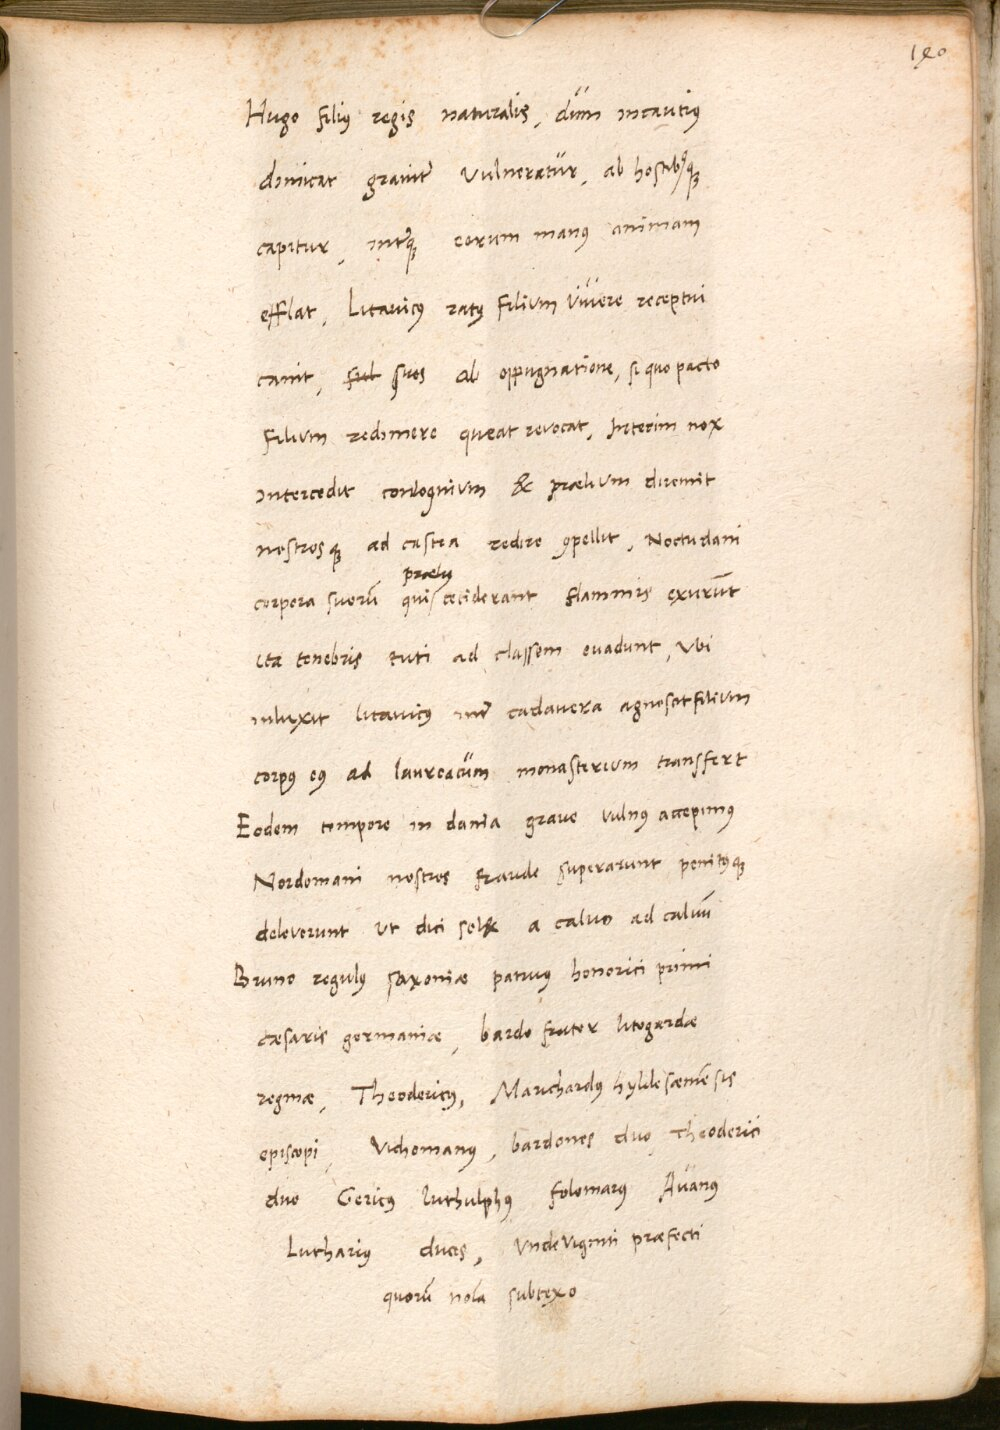 190
Hugo filiꝰ regis naturalis, dum incautiꝰ
dimicat grauit̃ vulneratur, ab hostibꝰqꝫ
capitur, int̃qꝫ eorum manꝰ animam
efflat, Litauicꝰ ratꝰ filium viuere receptui
canit, suos ab oppugnatione, si quo pacto
filium redimere queat reuocat, Interim nox
intercedit conloquium & prælium diremit
nostrosqꝫ ad castra redire ꝯpellit, Noctu dani
prælijs
corpora suorũ qui ceciderant flammis exurũt
ita tenebris tuti ad classem euadunt, Vbi
inluxit litauicꝰ int̃ cadauera agnoscit filium
corpꝰ eiꝰ ad laureacum monasterium transfert
Eodem tempore in dania graue vulnꝰ accepimꝰ
Nordomani nostros fraude superarunt penitꝰqꝫ
deleuerunt ut dici solet a caluo ad caluũ
Bruno regulꝰ saxoniæ patruꝰ honorici primi
cæsaris germaniæ, bardo frater litogardæ
reginæ, Theodericꝰ, Marichardꝰ hyldesæmẽsis
episcopi, Vichomanꝰ, bardones duo, theoderici
duo Gericꝰ luthulphꝰ folomarꝰ Auanꝰ
Lutharius duces, Vndeviginti præfecti
quorũ noĩa subtexo